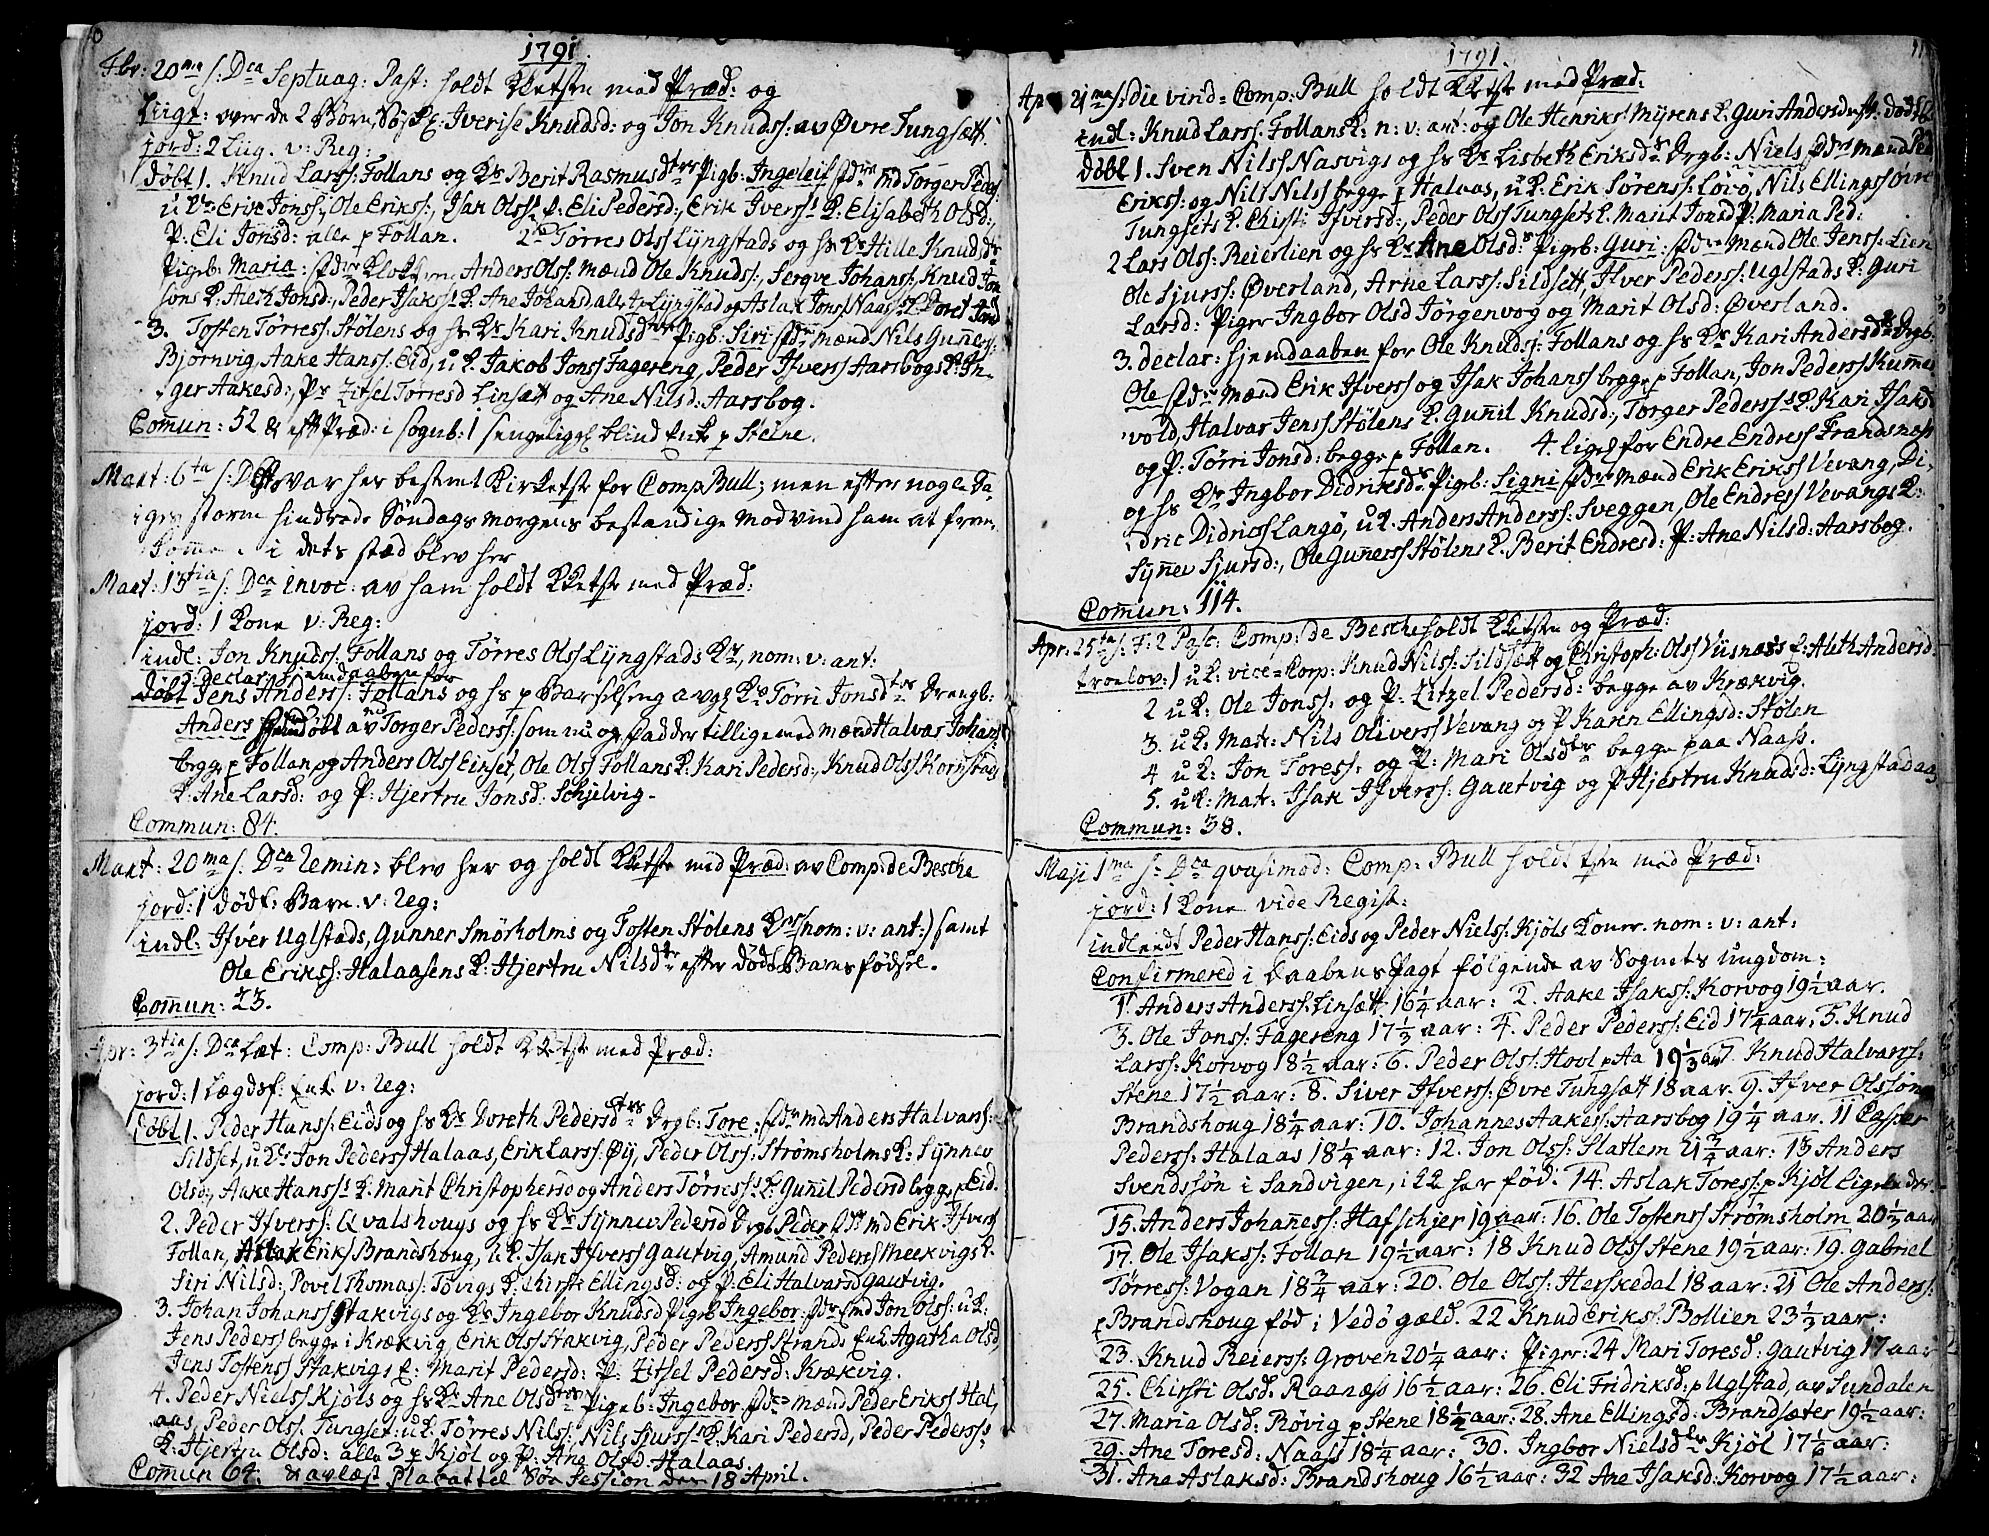 1791.
Fbr: 20me s: Dca Septuag: Past: holdt KKetste med Præd: og
Liigt: over de 2 Børn, Søsk: Iverise Knudsd: og Jon Knuds: av Øvre Tungsætt.
jord: 2 Lug. v: Reg:
døbt 1. Knud Larss: Follans og Ks Berit Rasmusdtrs Pigb: Ingeleif fdre md Torger Peders
u Kr Erik Jonss:, Ole Erikss:, Isak Olss K: Eli Pedersd:, Erik Iverss K: Elisabeth Olsd:,
P: Eli Jonsd: alle p Follan. 2 Tørres Olss Lyngstads og hs Ks Hille Knudsds
Pigeb: Maria: fdre Klokkeren Anders Olss: Mænd Ole Knuds:, Serqve Johans: Knud Jon
sons K: Aleth Jonsd:, Peder Isakss K: Ane Johansd alle p Lyngstad og Aslak Jonss Naas: K: Doret Jonsd
3. Tosten Tørress: Stølens og hs Ks Kari Knudsdtrs Pigb: Siri fdre mænd Nils Guners:
Bjørnvig, Aake Hanss: Eid, u K: Jakob Jonss Fagereng, Peder Iferss Aarsbogs K: In-
ger Aakesd:, Pr Zitsel Tørresd Linsætt og Ane Nilsd: Aarsbog.
Comun: 52 & eft Præd: i Sognb: 1 sengeligg: blind Enke p Steine.
Mart: 6ta s: D var her bestemt Kirketste for Comp Bull; men efter nogle Da
iges storm hindrede Søndags morgens bestandige Modvind ham at frem-
komme. i dets stæd blev her
Mart: 13tia s: Dca invoc: av ham holdt KKetste med Præd:
jord: 1 Kone v: Reg:
indl: Jon Knuds: Follans og Tørres Olss Lyngstads Kr, nom: v: ant:
Declar: hjemdaaben for
døbt Jens Anders: Follans og hs p Barselseng avg: Ks Tørri Jonsdtrs Drengb:
Anders hjemdøbt av Torger Peders: som nu og fadder tillige med mænd Halvar Johans
begge p Follan og Anders Olss Einset, Ole Olss Follans K: Kari Pedersd:, Knud Olss Kornstads
K: Ane Larsd: og P: Hjertru Jonsd: Schjelvig.
Commun: 84.
Mart: 20ma s: Dca Remin: blev her og holdt KKetste med Præd: av Comp: de Besche
jord: 1 dødf: Barn v: Reg:
indl: Ifver Uglstads, Gunner Smørholms og Tosten Stølens Kr (nom: v: ant:) samt
Ole Erikss: Halaasens K: Hjertru Nilsdtr efter dødt Barns fødsel.
Comun: 23.
Apr: 3tia s: Dca Læt: Comp: Bull holdt KKetste med Præd:
jord: 1 Lægdsf: Enk: v: Reg:
døbt 1. Peder Hanss: Eids og hs Ks Doreth Pedersdtrs Drgb: Tore: fdre md Anders Halvars:
Sildset, u Kr Jon Pederss Halaas, Erik Larss: Øy, Peder Olss: Strømsholms K: Synnev
Olsd:, Aake Hanss K: Marit Christophersd og Anders Tørress K: Gunil Pedersd begge p Eid.
2. Peder Ifverss: Qvalshougs og hs Ks Synnev Pedersd Drgb Peder fdre md Erik Ifvers
Follan, Aslak Eriks Brandshoug, u K: Isak Ifverss Gautvig, Amund Pederss Meekvigs K:
Siri Nilsd:, Povel Thomas: Tøvigs K: Chirsti Ellingsd: og P: Eli Halvarsd Gautvig.
3. Johan Johanss Stakvigs og Ks Ingebor Knudsd Pigeb Ingebor: fdre md Jon Olss: u K:
Jens Pederss begge i Krækvig, Erik Olss Stakvig, Peder Pederss Strands Enk Agatha Olsd,
Jens Tostens Stakvigs K: Marit Pedersd: P: Zitsel Pedersd: Krækvig.
4. Peder Nielss Kjøls og hs Ks Ane Olsdtrs Pigeb: Ingebor fdre mænd Peder Erikss Hal,
aas, Peder Olss: Tungset: u K: Tørres Nilss: Nils Sjurss K: Kari Pedersd, Peder Pederss
K: Hjertru Olsd: alle 3 p Kjøl og P: Ane Olsd Halaas.
Comun 64. & avlæst Placattel Søe Session den 18 April.
1791.
11
Apr. 21ma s: die virid= Comp: Bull holdt KKetste med Præd:
indl: Knud Larss: Follans K: n: v: ant: og Ole Henrikss Myrens K: Guri Andersd
døbt 1. Sven Nilss Nasvigs og hs Ks Lisbeth Eriksds Drgb: Niels fdre mænd Ped
Erikss: og Nils Nilss begge p Halvas, u K: Erik Sørenss: Løvø, Nils Ellingss Øvre
Tungsets K: Chisti Ifvirsd:, Peder Olss Tungsets K: Marit Jonsd P: Maria Ped:
2 Lars Olss: Reierlien og hs Ks Ane Olsds Pigeb: Guri: fdre mænd Ole Jenss: Lien
Ole Sjurss: Øverland, Arne Larss: Sildsett, Ifver Pederss: Uglstads K: Guri
Larsd: Piger Ingbor Olsd Jørgenvog og Marit Olsd: Øverland.
3. declar: hjemdaaben for Ole Knuds: Follans og hs Ks Kari Andersds Drgb:
Ole fdre mænd Erik Ifverss og Isak Johanss begge p Follan, Jon Pederss Kumer
vold, Halvar Jenss Stølens K: Gunil Knudsd:, Torger Pederss K: Kari Isaksd
og P: Tørri Jonsd: begge p Follan. 4. liges for Endre Endress Frandsnæss
og hs Ks Ingbor Didriksds Pigeb: Signi fdre mænd Erik Erikss Vevang, Di,
dric Didricss Langø, u K: Anders Anderss: Sveggen, Ole Endress Vevangs K:
Synnev Sjursd:, Ole Guness Stølens K: Berit Endresd: P: Ane Nilsd: Aarsbog.
Comun: 114.
Apr: 25ta s: F: 2 Pasc: Comp: de Besche holdt KKetste og Præd:
troelov: 1 u K: vice=Corp: Knud Nilss: Sildsætt og Christoph: Olss Visnæss E: Aleth Andersd:
2 u K: Ole Jonss: og P: Zitzel Pedersd: begge av Krækvig.
3. u K: Mat: Nils Oliverss Vevang og P Karen Ellingsd: Stølen
4 u K: Jon Toress: og P: Mari Olsdtr begge paa Naass.
5. u K: Mat: Isak Ifverss: Gautvig og P Hjertru Knudsd: Lyngstadaas
Commun: 38.
Maji 1ma s: Dca qvasimod: Comp: Bull holdt tste med Præd:
jord: 1 Kone vide Regist:
indledt Peder Hanss: Eids og Peder Nielss: Kjøls Koner. nom: v: ant:
Confirmered i Daabens Pagt følgende av Sognets ungdom:
1. Anders Anderss: Linsætt 16 1/4 aar: 2. Aake Isakss: Korvog 19 1/2 aar.
3. Ole Jonss: Fagereng 17 1/3 aar: 4. Peder Pederss: Eid 17 1/4 aar, 5. Knud
Larss: Korvog 18 1/2 aar: 6. Peder Olss: Hool p Aa 19 1/3 aar 7. Knud Halvarss:
Stene 17 1/2 aar: 8. Siver Ifverss: Øvre Tungsætt 18 aar. 9. Ifver Olssøn
Brandshoug 18 1/4 aar: 10. Johannes Aakess: Aarsbog 19 1/4 aar. 11 Casper
Pederss: Halaas 18 1/4 aar: 12. Jon Olss: Slatlem 21 3/4 aar: 13 Anders
Svendssøn i Sandvigen, i 22 her fød. 14. Aslak Toress: p Kjøl ligeledes
15. Anders Johaness: Hafschjer 19 aar: 16. Ole Tostenss Strømsholm 20 1/3 aar
17. Ole Isakss: Follan 19 1/2 aar: 18 Knud Olss Stene 19 1/2 aar: 19. Gabriel
Tørress: Vogan 18 3/4 aar: 20. Ole Olss: Herskedal 18 aar: 21 Ole Anderss:
p Brandshoug fød i Vedø gæld. 22 Knud Erikss: Bollien 23 1/3 aar:
23. Knud Reierss: Groven 20 1/4 aar: Piger: 24 Mari Toresd: Gautvig 17 aar
25. Chirsti Olsd: Raanæss 16 1/2 aar: 26. Eli Fridriksd: p Uglstad, av Sundalen
27. Maria Olsd: Røvig p Stene 18 1/2 aar: 28. Ane Ellingsd: Brandsæter 19 1/2 aar:
29. Ane Toresd: Naass 18 1/4 aar: 30. Ingbor Nielsdtr Kjøl 17 1/6 aar:
31. Ane Aslaksd: Brandshoug 16 1/2 aar: 32 Ane Isaksd: Korvog 17 1/2 aar: